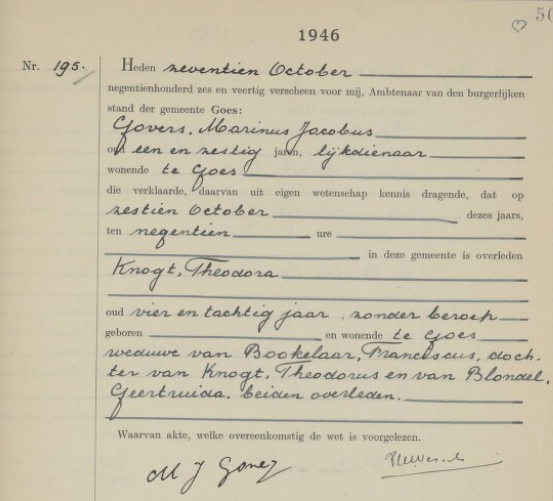 50
1946
Nr. 195. Heden zeventien October
negentienhonderd zes en veertig verscheen voor mij, Ambtenaar van den burgerlijken
stand der gemeente Goes:
Govers, Marinus Jacobus
oud een en zestig jaren, lijkdienaar
wonende te Goes
die verklaarde, daarvan uit eigen wetenschap kennis dragende, dat op
zestien October dezes jaars,
ten negentien ure
in deze gemeente is overleden
Knogt, Theodora
oud vier en tachtig jaar, zonder beroep
geboren en wonende te Goes
weduwe van Bookelaar, Franciscus, doch-
ter van Knogt, Theodorus en van Blondel,
Geertruida, beiden overleden.
Waarvan akte, welke overeenkomstig de wet is voorgelezen.
M J Govers